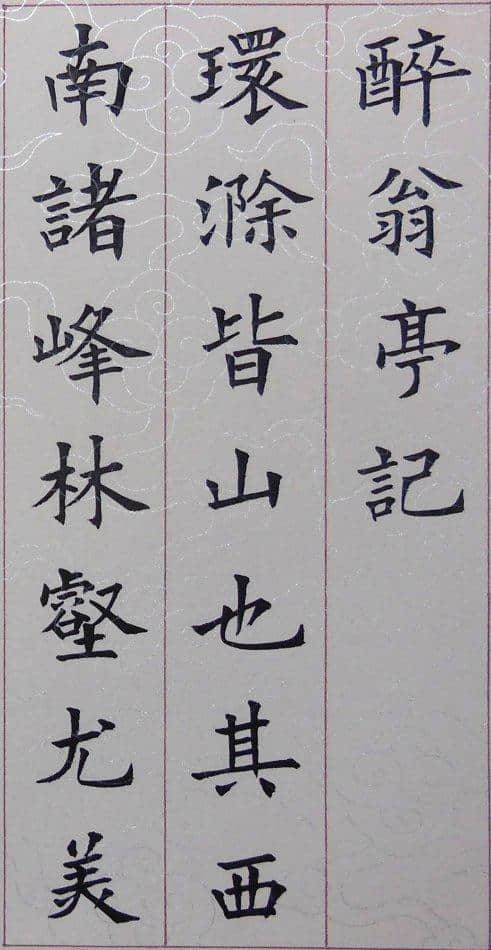 醉翁亭記
環滁皆山也其西
南諸峰林壑尤美